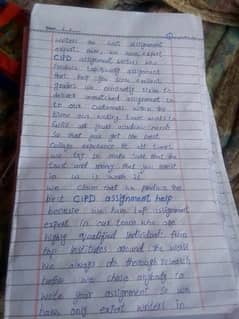 writers on last assignment
expert also, we have expert
CIPD assignment writers who
produce top-quality assignment
that help you score excellent
grades we constantly strive to
deliver unmatched assignment
to our customers within the
time our writing team works to
fulfil all your academic needs
so that you get the best
college experience at all times
we try to make sure that the
trust and money that you invest
in us is worth it
We claim that we produce the
best CIPD assignment help
because we have top assignment
expert in our team who are
highly qualified individual from
top institutes around the world
We always do thorough research
before we chose aspects to
write your assignment so we
have only expert writers in